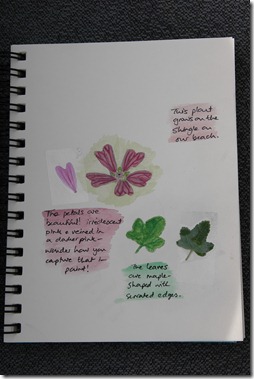 This plant
grows on the
shingle on
our beach.
The petals are
beautiful! irridescent
pink & veined in
a darker pink -
wonder how you
capture that in
paint!
The leaves
are maple-
shaped with
serrated edges.